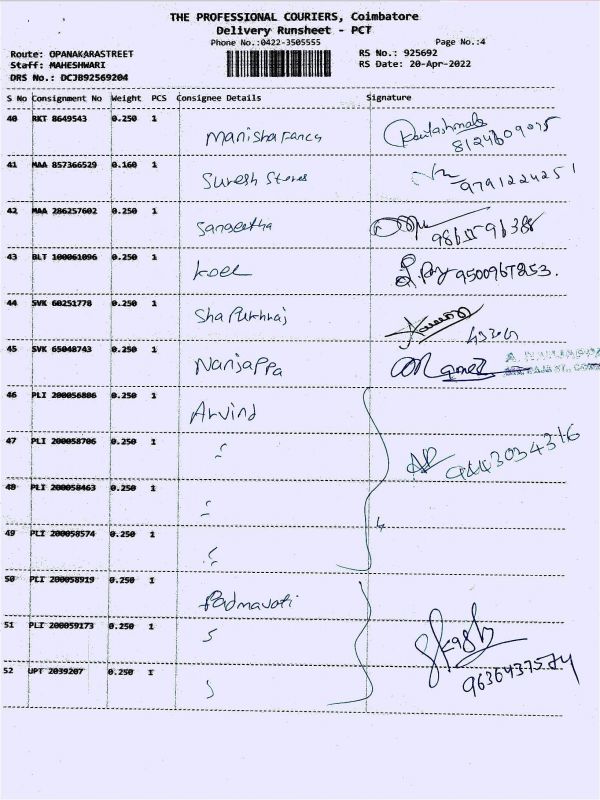 THE PROFESSIONAL COURIERS, Coimbatore
Delivery Runsheet - PCT
Phone No.:0422-3505555 Page No.:4
Route: OPANAKARASTREET RS No.: 925692
Staff: MAHESHWARI RS Date: 20-Apr-2022
DRS No.: DCJB92569204
S No Consignment No Weight PCS Consignee Details Signature
40 RKT 8649543 0.250 1
Manisha Fancy
8124609075
41 MAA 857366529 0.160 1
Suresh Stores 9791224251
42 MAA 286257602 0.250 1
Sangeetha
43 BLT 100061096 0.250 1
Koel 9500967853.
44 SVK 60251778 0.250 1
Sha Pukhraj
45 SVK 65048743 0.250 1
Nanjappa
46 PLI 200056806 0.250 1
Arvind
47 PLI 200058706 0.250 1
9443034316
48 PLI 200058463 0.250 1
4
49 PLI 200058574 0.250 1
50 PLI 200058919 0.250 1
Padmavati
51 PLI 200059173 0.250 1
52 UPT 2039207 0.250 1
9636437574